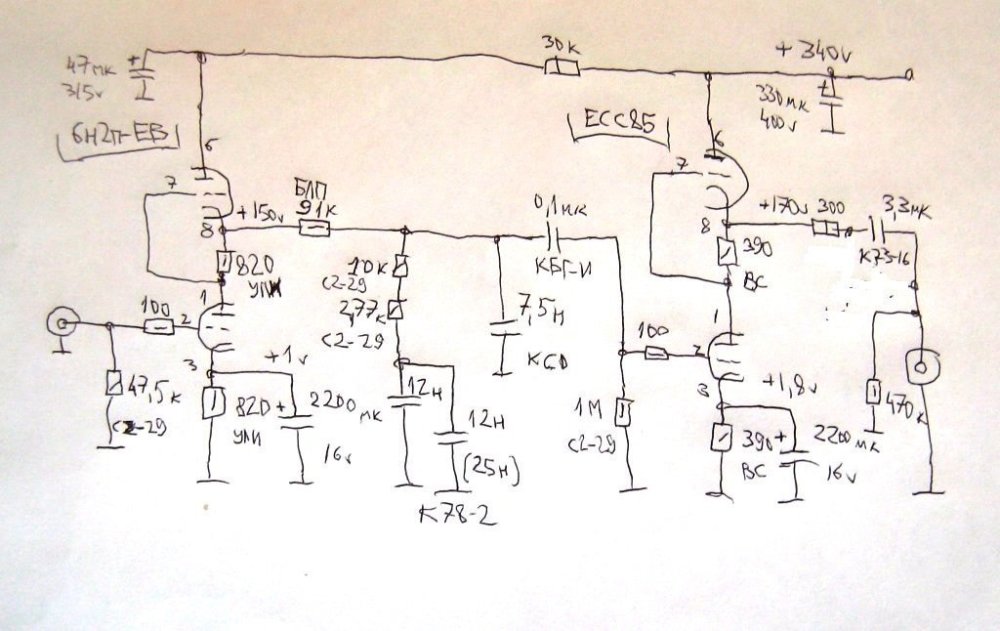 47мк
315v
6Н2П-ЕВ
30к
+340v
330мк
400v
ECC85
6
7
8
+150v
БЛП
91к
820
УЛИ
1
2
3
100
47,5к
С2-29
+1v
820
УЛИ
+
2200мк
16v
10к
С2-29
2,77к
С2-29
12Н
12Н
(25Н)
К78-2
7,5Н
КСО
0,1мк
КБГ-И
1М
С2-29
100
6
7
8
+170v
300
3,3мк
К73-16
390
ВС
1
2
3
+1,8v
390
ВС
+
2200мк
16v
470к